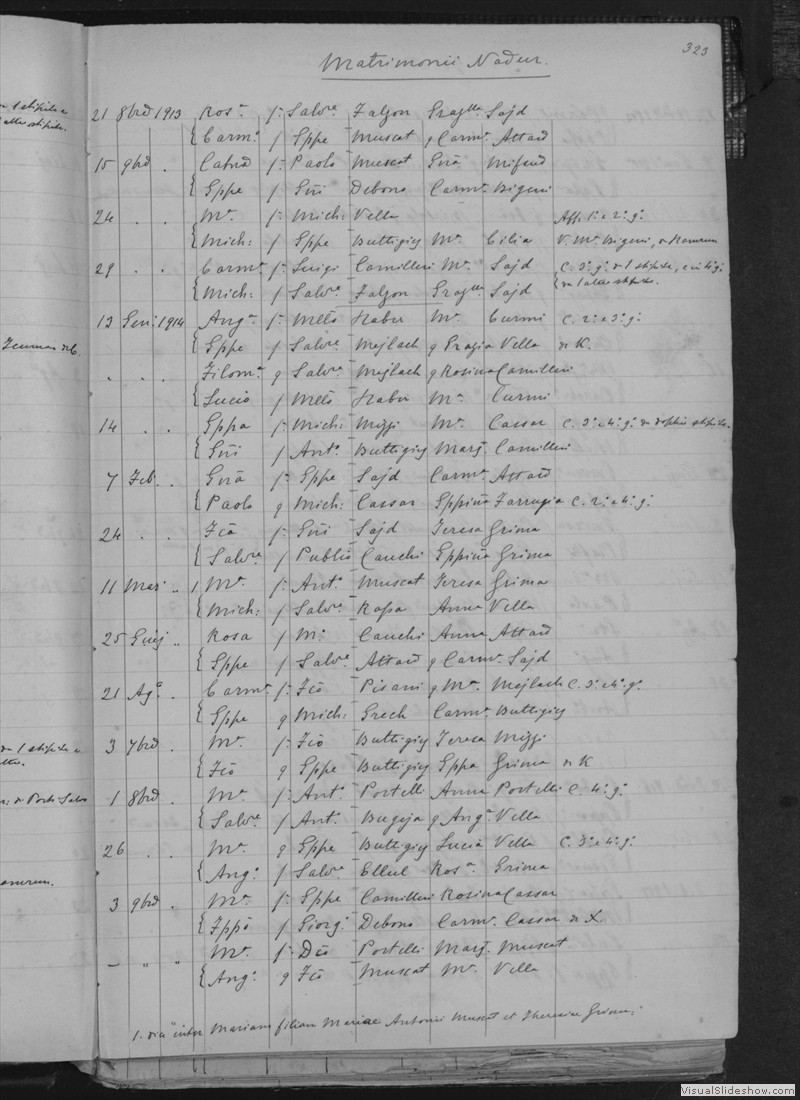 323
Matrimonii Nadur.
21 8bre 1913 Rosa. f. Salvre Falzon Grazlla Sajd
{ Carma. f Gppe Muscat q Carma. Attard
15 9bre . Catna f. Paolo Muscat Gna Mifsud
{ Gppe f Gni Debono Carma. Bigeni
24 . . Ma. f. Mich: Vella Aff. 1. e 2. g.
{ Mich: f Gppe Buttigieg Ma. Cilia V. Ma. Bigeni,
29 . . Carma. f. Luigi Camilleri Ma. Sajd C. 3. g. in 1 stipite, e in 4 g.
{ Mich: f Salvre Falzon Grazlla Sajd in 1 altro stipite.
12 Gen: 1914 Anga. f. Mello Haber Ma. Curmi C. 2. e 3. g.
{ Gppe f Salvre Mejlach q Grazia Vella di K.
. . . Filoma. q Salvre Mejlach q Rosina Camilleri
{ Lucio f Mello Haber Ma. Curmi
14 . . Gppa f. Mich: Mizzi Ma. Cassar C. 3. e 4. g. in duplici stipite.
{ Gni f Anto. Buttigieg Marg. Camilleri
7 Feb. . Gna f. Gppe Sajd Carma. Attard
{ Paolo q Mich: Cassar Gppina Farrugia C. 2. e 4. g.
24 . . Fca f. Gni Sajd Teresa Grima
{ Salvre f Publio Cauchi Gppina Grima
11 Mar . . 1. Ma. f. Anto. Muscat Teresa Grima
{ Mich: f Salvre Rapa Anna Vella
25 Giug .. Rosa f M: Cauchi Anna Attard
{ Gppe f Salvre Attard q Carma. Sajd
21 Ago. . Carma. f. Fco Pisani q Ma. Mejlach C. 3. e 4. g.
{ Gppe q Mich: Grech Carma. Buttigieg
3 7bre . Ma. f. Fco Buttigieg Teresa Mizzi
{ Fco q Gppe Buttigieg Gppa Grima di K
1 8bre . Ma. f. Anto. Portelli Anna Portelli C. 4. g.
{ Salvre. f Anto. Bugeja q Anga. Vella
26 . . Ma. q Gppe Buttigieg Lucia Vella C. 3. e 4. g.
{ Ang: f Salvre Ellul Rosa. Grima
3 9bre . Ma. f. Gppe Camilleri Rosina Cassar
{ Fppo f Giorg. Debono Carma. Cassar di X.
— " " Ma. f. Dco Portelli Marg. Muscat
{ Ang: q Fco Muscat Ma. Vella
1. inter Mariam filiam Antonii Muscat et Theresiae Grima;
VisualSlideshow.com